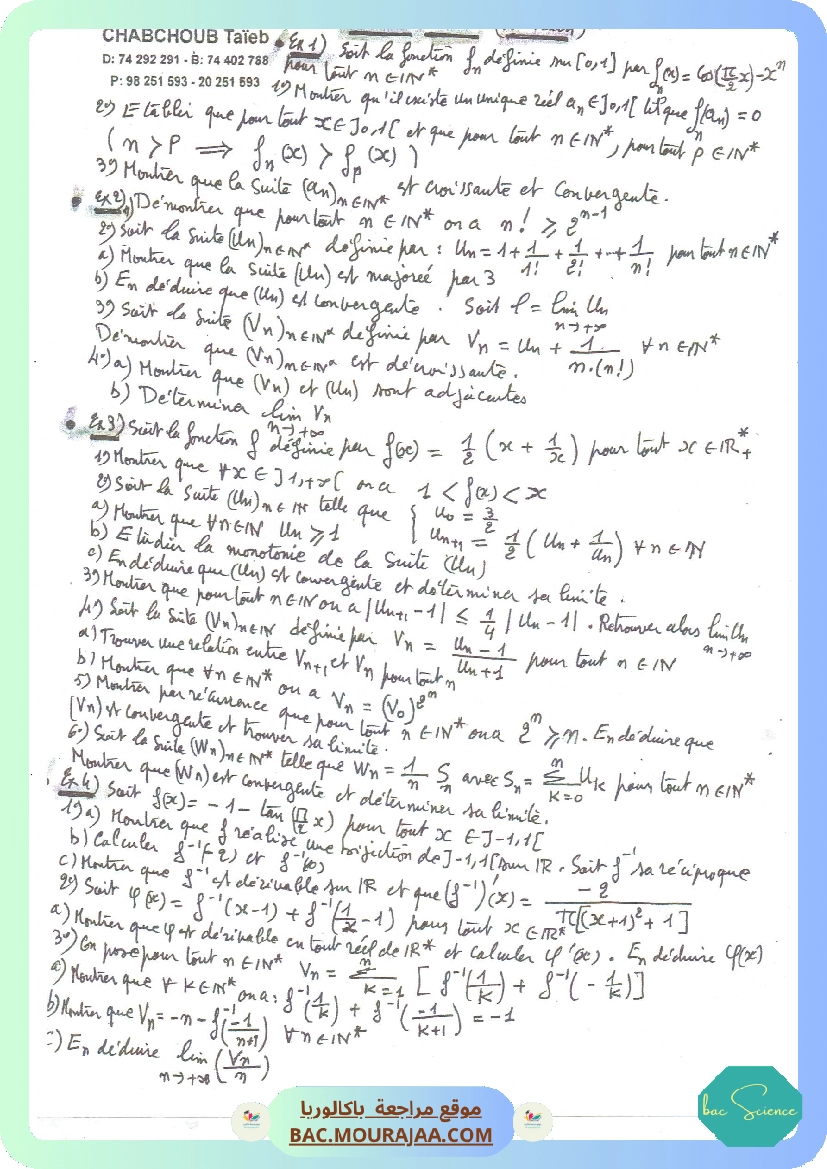 CHABCHOUB Taïeb
D: 74 292 291 - B: 74 402 788
P: 98 251 593 - 20 251 593
Ex 1) Soit la fonction fn définie sur [0,1] par fn(x) = cos(π/2 x) - x^n
pour tout n ∈ IN*
1°) Montrer qu'il existe un unique réel an ∈ ]0,1[ tel que fn(an) = 0
2°) Etablir que pour tout x ∈ ]0,1[ et que pour tout n ∈ IN*, pour tout p ∈ IN*
(n > p ⟹ fn(x) > fp(x))
3°) Montrer que la suite (an)n∈IN* est croissante et convergente.
Ex 2) 1) Démontrer que pour tout n ∈ IN* on a n! ≥ 2^(n-1)
2°) Soit la suite (Un)n∈IN* définie par : Un = 1 + 1/1! + 1/2! + ... + 1/n! pour tout n ∈ IN*
a) Montrer que la suite (Un) est majorée par 3
b) En déduire que (Un) est convergente. Soit l = lim Un n→+∞
3°) Soit la suite (Vn)n∈IN* définie par Vn = Un + 1/(n.(n!)) ∀ n ∈ IN*
Démontrer que (Vn)n∈IN* est décroissante.
4°) a) Montrer que (Vn) et (Un) sont adjacentes
b) Déterminer lim Vn n→+∞
Ex 3) Soit la fonction f définie par f(x) = 1/2 (x + 1/x) pour tout x ∈ IR*+
1°) Montrer que ∀ x ∈ ]1,+∞[ on a 1 < f(x) < x
2°) Soit la suite (Un)n∈IN telle que { U0 = 3/2
Un+1 = 1/2 (Un + 1/Un) ∀ n ∈ IN
a) Montrer que ∀ n ∈ IN Un ≥ 1
b) Etudier la monotonie de la suite (Un)
c) En déduire que (Un) est convergente et déterminer sa limite.
3°) Montrer que pour tout n ∈ IN on a |Un+1 - 1| ≤ 1/4 |Un - 1|. Retrouver alors lim Un n→+∞
4°) Soit la suite (Vn)n∈IN définie par Vn = (Un - 1)/(Un + 1) pour tout n ∈ IN
a) Trouver une relation entre Vn+1 et Vn pour tout n
b) Montrer que ∀ n ∈ IN* on a Vn = (V0)^2^n
5°) Montrer par récurrence que pour tout n ∈ IN* on a 2^n ≥ n. En déduire que
(Vn) est convergente et trouver sa limite.
6°) Soit la suite (Wn)n∈IN* telle que Wn = 1/n Sn avec Sn = Σ k=0 n Uk pour tout n ∈ IN*
Montrer que (Wn) est convergente et déterminer sa limite.
Ex 4) Soit f(x) = -1 - tan(π/2 x) pour tout x ∈ ]-1,1[
1°) a) Montrer que f réalise une bijection de ]-1,1[ sur IR. Soit f^-1 sa réciproque
b) Calculer f^-1(-2) et f^-1(0)
c) Montrer que f^-1 est dérivable sur IR et que (f^-1)'(x) = -2/(π[(x+1)² + 1])
2°) Soit φ(x) = f^-1(x-1) + f^-1(1/x - 1) pour tout x ∈ IR*
a) Montrer que φ est dérivable en tout réel de IR* et calculer φ'(x). En déduire φ(x)
3°) On pose pour tout n ∈ IN* Vn = Σ k=1 n [f^-1(1/k) + f^-1(-1/k)]
a) Montrer que ∀ k ∈ IN* on a : f^-1(1/k) + f^-1(-1/(k+1)) = -1
b) Montrer que Vn = -n - f^-1(-1/(n+1)) ∀ n ∈ IN*
c) En déduire lim n→+∞ (Vn/n)
موقع مراجعة باكالوريا
BAC.MOURAJAA.COM
bac Science